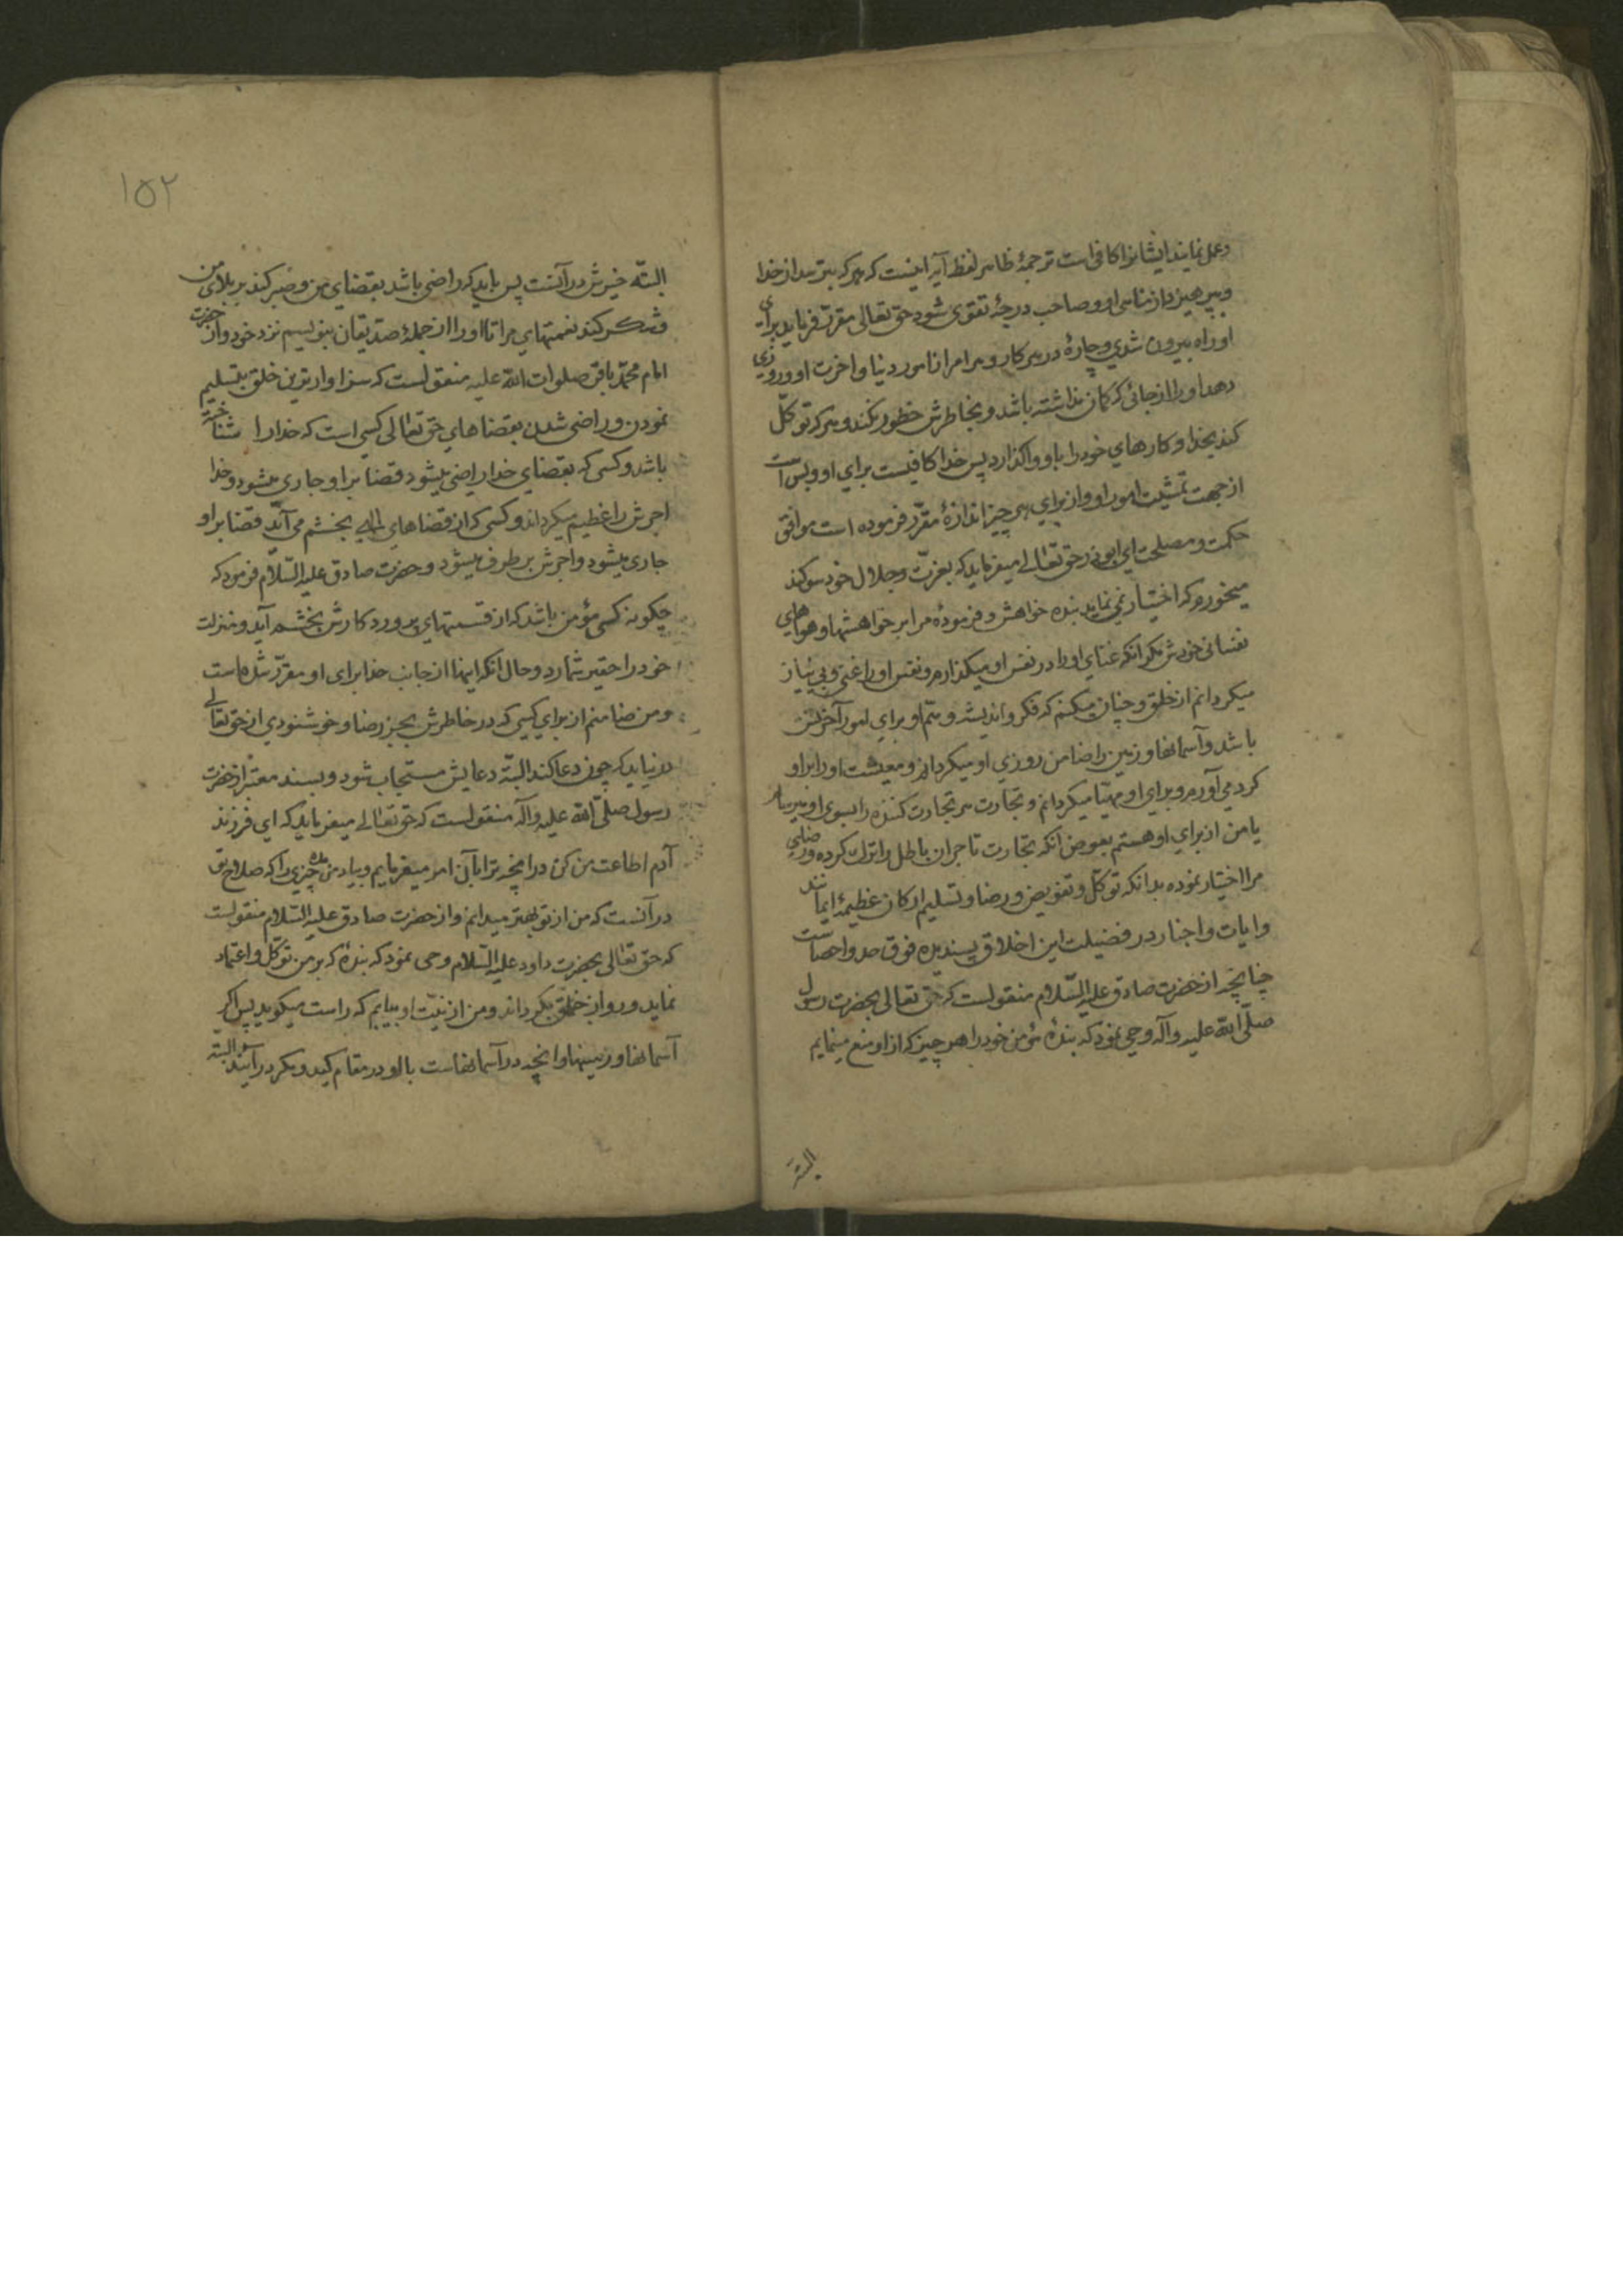 وعمل نمایند ایشانرا کافی است ترجمهٔ ظاهر لفظ آیه اینست که هر که بترسد از خدا
وبپرهیزد از مناهی او و صاحب درجهٔ تقوی شود حق تعالی مقرر فرماید برای
او راه بیرون شدی و چارهٔ در هر کار و هر امر از امور دنیا و اخرت او و روزی
دهد او را از جائی که کمان نداشته باشد و بخاطرش خطور نکند و هر که توکّل
کند بخدا و کارهای خود را باو واکذارد پس خدا کافیست برای او و بس است
از جهت تمشیت امور او و از برای هر چیز اندازهٔ مقرّر فرموده است موافق
حکمت و مصلحت ای ابوذر حق تعالی میفرماید که بعزّت و جلال خود سوکند
میخورم که اختیار نمی نماید بنده خواهش و فرمودهٔ مرا بر خواهشها و هواهای
نفسانی خودش مکر انکه غنای او را در نفس او میکذارم و نفس او را غنی و بی نیاز
میکردانم از خلق و چنان میکنم که فکر و اندیشه و همّ او برای امور آخرتش
باشد و آسمانها و زمین را ضامن روزی او میکردانم و معیشت او را بر او
کرد می آورم و برای او مهیّا میکردانم و تجارت هر تجارت کننده را بسوی او میرسانم
یا من از برای او هستم بعوض انکه تجارت تاجران باطل را ترک کرده و رضای
مرا اختیار نموده بدانکه توکّل و تفویض و رضا و تسلیم ارکان عظیمهٔ ایمانند
و ایات و اخبار در فضیلت این اخلاق پسندیده فوق حد و احصاست
چنانچه از حضرت صادق علیه السّلام منقولست که حق تعالی بحضرت رسول
صلّی الله علیه وآله وحی نمود که بندهٔ مؤمن خود را هر چیز که از او منع مینمایم
البتّه
۱۵۲
البتّه خیرش در آنست پس باید که راضی باشد بقضای من و صبر کند بر بلای من
و شکر کند نعمتهای مرا تا او را از جملهٔ صدّیقان بنویسم نزد خود و از حضرت
امام محمّد باقر صلوات الله علیه منقولست که سزاوارترین خلق بتسلیم
نمودن و راضی شدن بقضاهای حق تعالی کسی است که خدا را شناخته
باشد و کسی که بقضای خدا راضی میشود قضا بر او جاری میشود و خدا
اجرش را عظیم میکرداند و کسی که از قضاهای الهی بخشم می آید قضا بر او
جاری میشود و اجرش بر طرف میشود و حضرت صادق علیه السّلام فرمود که
چکونه کسی مؤمن باشد که از قسمتهای پرورد کارش بخشم آید و منزلت
خود را حقیر شمارد و حال انکه اینها از جانب خدا برای او مقرّر شده است
و من ضامنم از برای کسی که در خاطرش بجز رضا و خوشنودی از حق تعالی
در نیاید که چون دعا کند البتّه دعایش مستجاب شود و بسند معتبر از حضرت
رسول صلّی الله علیه وآله منقولست که حق تعالی میفرماید که ای فرزند
آدم اطاعت من کن در انچه ترا بآن امر میفرمایم و بیاد من مده چیزی را که صلاح تو
در آنست که من از تو بهتر میدانم و از حضرت صادق علیه السّلام منقولست
که حق تعالی بحضرت داود علیه السّلام وحی نمود که بندهٔ که بر من توکّل و اعتماد
نماید و رو از خلق بکرداند و من از نیّت او بیابم که راست میکوید پس اکر
آسمانها و زمینها و انچه در آسمانهاست با او در مقام کید و مکر در آیند البتّه